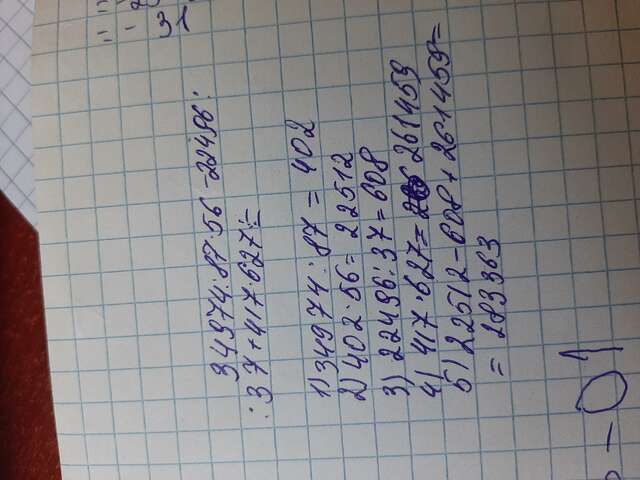 31
34974:87·56-22496:
:37+417·627=
1) 34974:87=402
2) 402·56=22512
3) 22496:37=608
4) 417·627= 261459
5) 22512-608+261459=
= 283363